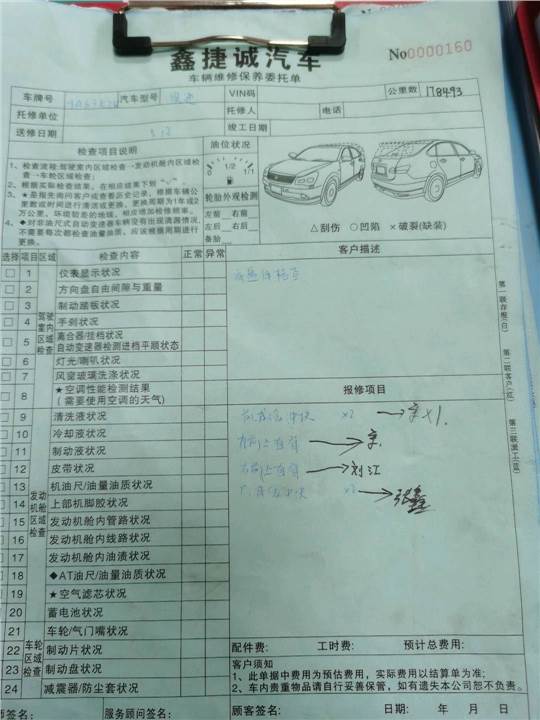 鑫捷诚汽车
No0000160
车辆维修保养委托单
车牌号 汽车型号 VIN码 公里数 178493
托修单位 托修人 电话
送修日期 竣工日期
检查项目说明
1、检查流程:驾驶室内区域检查→发动机舱内区域检查→车轮区域检查。
2、根据实际检查结果,在相应结果下划"✓"
3、★是指先询问客户或查看历史记录,根据车辆公里数或时间进行清洁或更换,更换周期为1年或2万公里,环境较差的地域,相应增加检修频率。
4、◆对非油尺式自动变速器车辆没有出现滴漏情况,不需要每次都检查油量油质,应该根据周期进行更换。
油位状况
0 1/2 1/1
轮胎外观检测
左前 右前
左后 右后
备胎
△刮伤 ○凹陷 ×破裂(缺装)
选择 项目 区域 检查内容 正常 异常
客户描述
驾驶室内区域检查
1 仪表显示状况
2 方向盘自由间隙与重量
3 制动踏板状况
4 手刹状况
5 离合器/挂档状况
自动变速器检测进档平顺状态
6 灯光/喇叭状况
7 风窗玻璃洗涤状况
8 ★空调性能检测结果
(需要使用空调的天气)
发动机舱区域检查
9 清洗液状况
10 冷却液状况
11 制动液状况
12 皮带状况
13 机油油尺/油量油质状况
14 上部机脚胶状况
15 发动机舱内管路状况
16 发动机舱内线路状况
17 发动机舱内油渍状况
18 ◆AT油尺/油量油质状况
19 ★空气滤芯状况
20 蓄电池状况
车轮区域检查
21 车轮/气门嘴状况
22 制动片状况
23 制动盘状况
24 减震器/防尘套状况
报修项目
×2
→刘江
×2 →张鑫
第一联存根(白)
第二联客户(红)
配件费: 工时费: 预计总费用:
客户须知
1、此单据中费用为预估费用,实际费用以结算单为准;
2、车内贵重物品请自行妥善保管,如有遗失本公司恕不负责。
师签名: 服务顾问签名: 顾客签名: 日期: 年 月 日